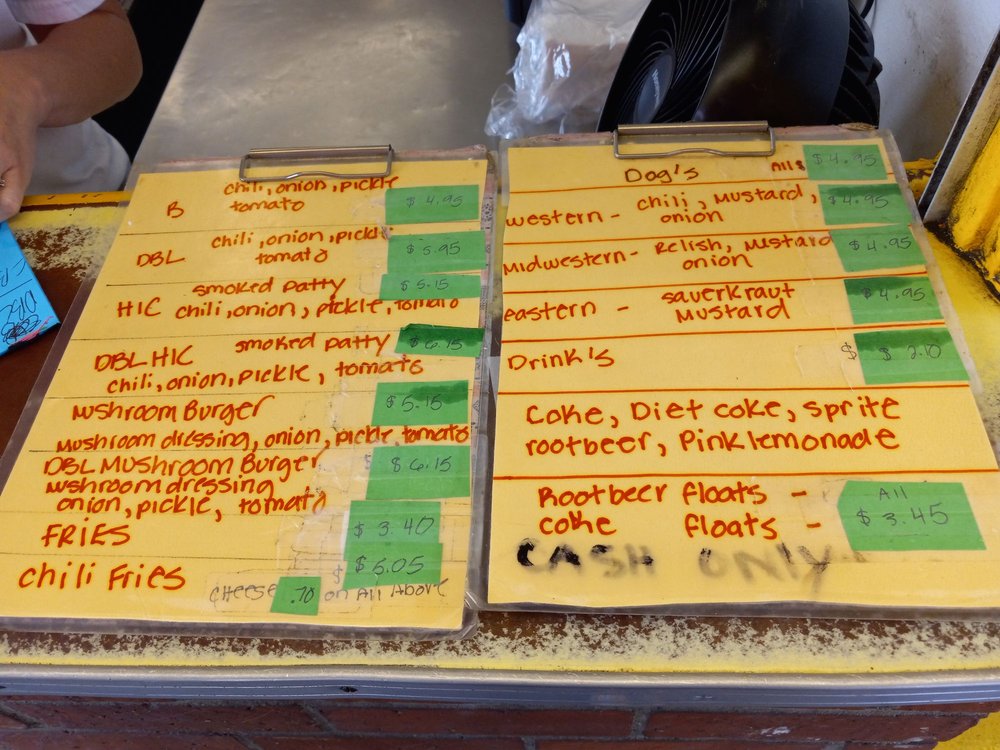 chili, onion, pickle
B tomato $4.95
chili, onion, pickle
DBL tomato $5.95
smoked patty $5.15
HIC chili, onion, pickle, tomato
DBL HIC smoked patty $6.15
chili, onion, pickle, tomato
Mushroom Burger $5.15
Mushroom dressing, onion, pickle, tomato
DBL Mushroom Burger $6.15
Mushroom dressing
onion, pickle, tomato
FRIES $3.40
Chili Fries $5.05
CHEESE .70 on All Above
Dog's All $ $4.95
western - chili, Mustard, $4.95
onion
Midwestern - Relish, Mustard $4.95
onion
eastern - sauerkraut $4.95
Mustard
Drink's $ $2.10
Coke, Diet coke, sprite
rootbeer, Pink lemonade
Rootbeer floats - All
coke floats - $3.45
CASH ONLY
DBL